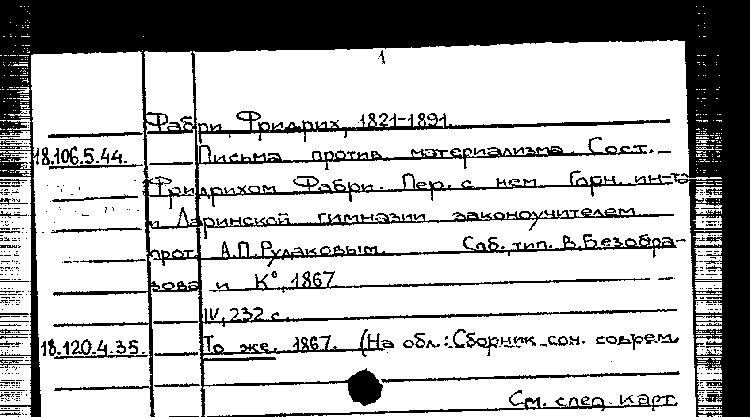 1
Фабри, Фридрих, 1821-1891.
18.106.5.44. Письма против материализма. Сост.
Фридрихом Фабри. Пер. с нем. Горн. ин-та
и Ларинской гимназии законоучителем
прот. А.П.Рудаковым. Спб., тип. В.Безобра-
зова и К°, 1867
IV, 232 с.
18.120.4.35. То же. 1867. (На обл.: Сборник соч. соврем.
См. след. карт.